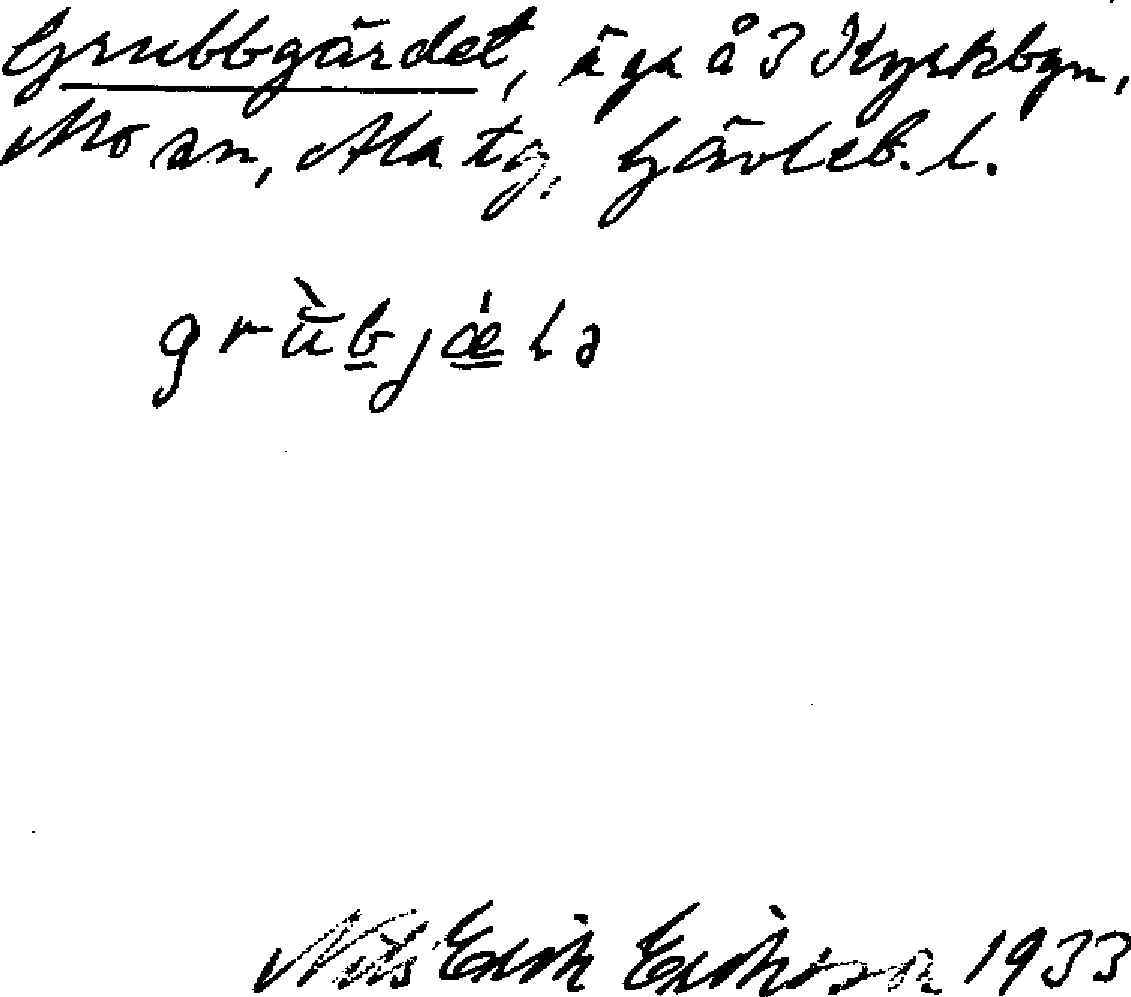 Grubbgärdet, äga å 3 Kyrkbyn,
Mo sn, Ala tg, Gävleb. l.
grùbjǽlə
Nils Erik Eriksson 1933